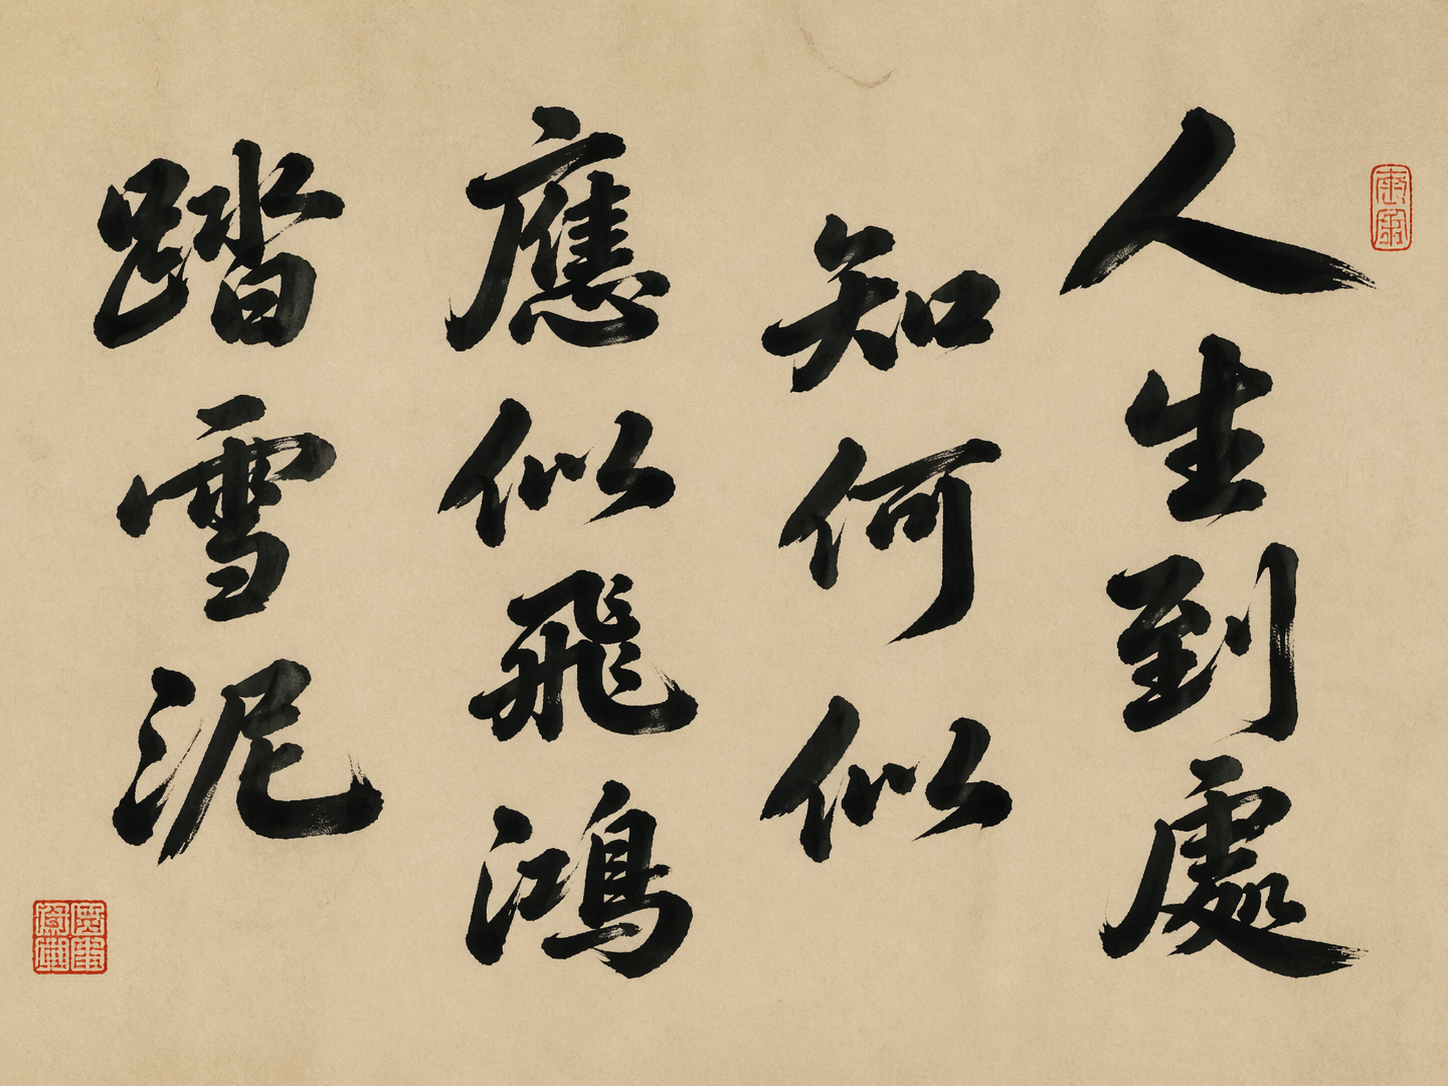 人生到處
知何似
應似飛鴻
踏雪泥